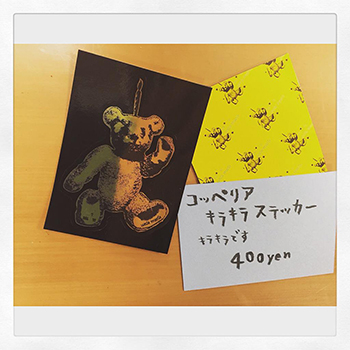 コッペリア
キラキラ ステッカー
キラキラです
400yen